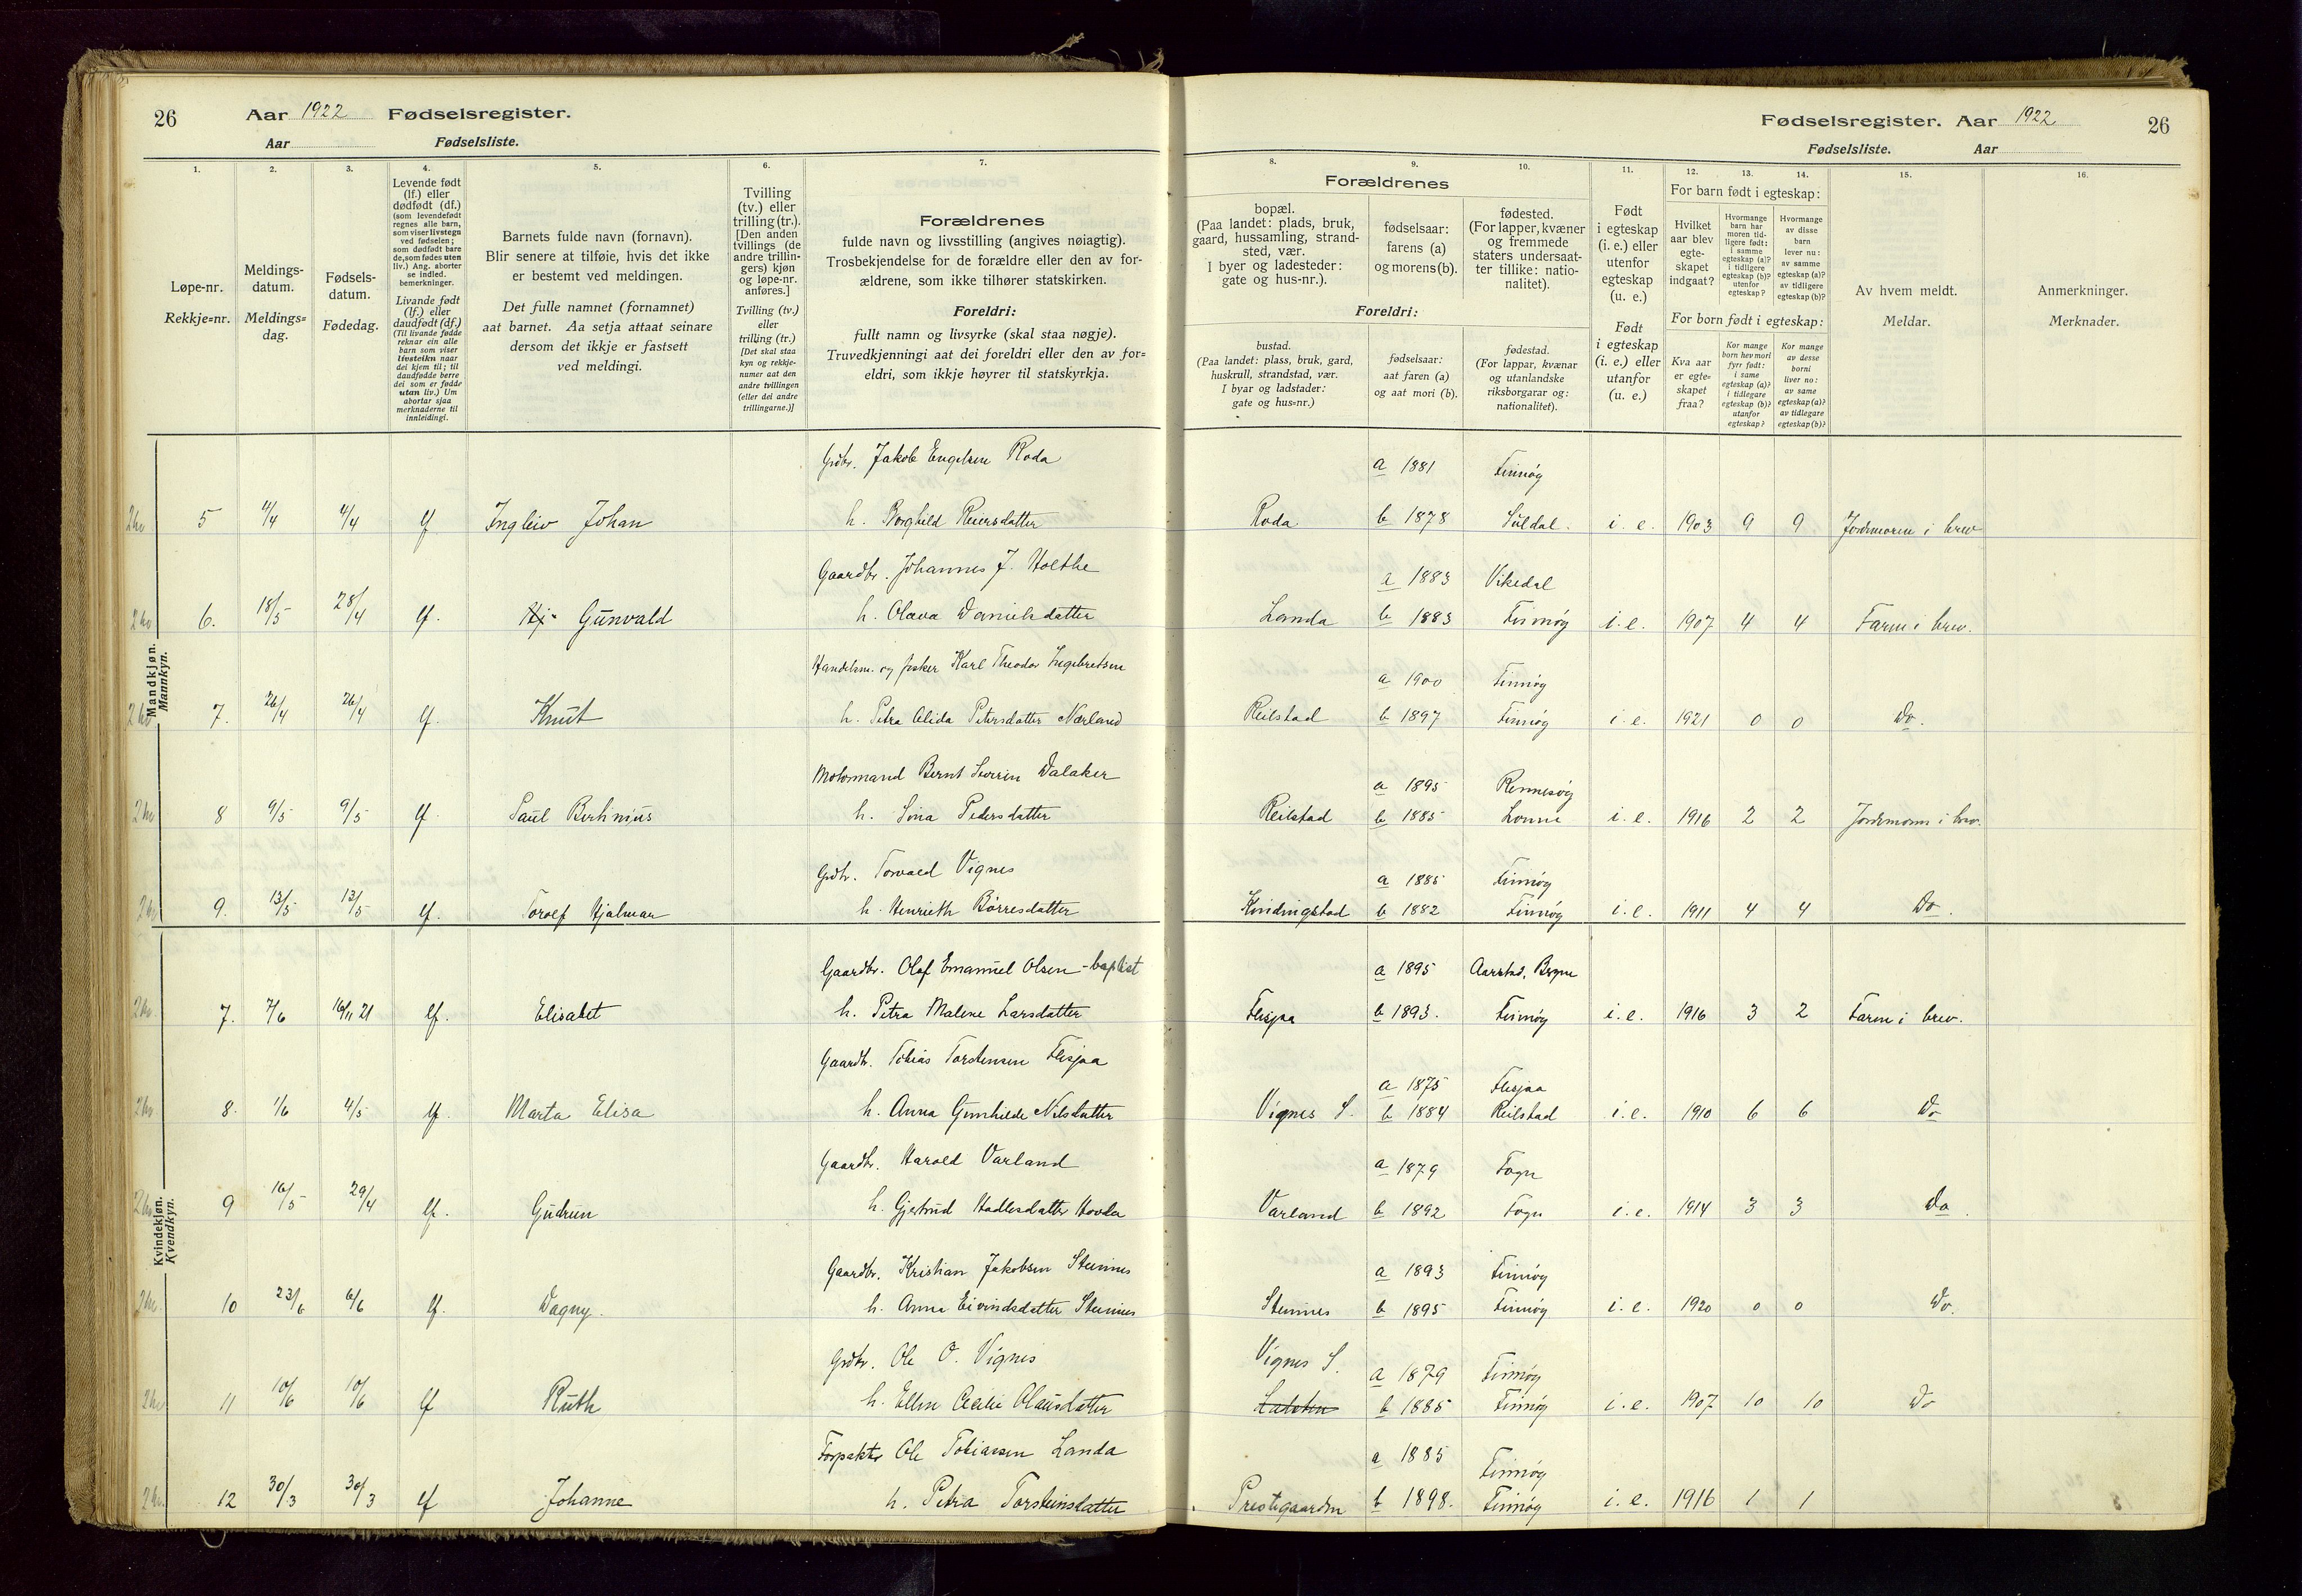 26 Aar 1922 Fødselsregister.
Aar Fødselsliste.
Fødselsregister. Aar 1922 26
Fødselsliste. Aar
1. 2. 3. 4. 5. 6. 7. 8. 9. 10. 11. 12. 13. 14. 15. 16.
Løpe-nr.
Rekkje=nr.
Meldings-
datum.
Meldings=
dag.
Fødsels-
datum.
Fødedag.
Levende født
(lf.) eller
dødfødt (df.)
(som levendefødt
regnes alle barn,
som viser livstegn
ved fødselen;
som dødfødt bare
de, som fødes uten
liv.) Ang. aborter
se indled.
bemerkninger.
Livande født
(lf.) eller
daudfødt (df.)
(Til livande fødde
reknar ein alle
barn som viser
livsteikn naar
dei kjem til; til
daudfødde berre
dei som er fødde
utan liv.) Um
abortar sjaa
merknaderne til
innleidingi.
Barnets fulde navn (fornavn).
Blir senere at tilføie, hvis det ikke
er bestemt ved meldingen.
Det fulle namnet (fornamnet)
aat barnet. Aa setja attaat seinare
dersom det ikkje er fastsett
ved meldingi.
Tvilling
(tv.) eller
trilling (tr.).
[Den anden
tvillings (de
andre trillin-
gers) kjøn
og løpe-nr.
anføres.]
Tvilling (tv.)
eller
trilling (tr.)
[Det skal staa
kyn og rekkje-
numer aat den
andre tvillingen
(eller dei andre
trillingarne.)]
Forældrenes
fulde navn og livsstilling (angives nøiagtig).
Trosbekjendelse for de forældre eller den av for-
ældrene, som ikke tilhører statskirken.
Foreldri:
fullt namn og livsyrke (skal staa nøgje).
Truvedkjenningi aat dei foreldri eller den av for-
eldri, som ikkje høyrer til statskyrkja.
Forældrenes
bopæl.
(Paa landet: plads, bruk,
gaard, hussamling, strand-
sted, vær.
I byer og ladesteder:
gate og hus-nr.).
fødselsaar:
farens (a)
og morens (b).
fødested.
(For lapper, kvæner
og fremmede
staters undersaat-
ter tillike: natio-
nalitet).
Foreldri:
bustad.
(Paa landet: plass, bruk, gard,
huskrull, strandstad, vær.
I byar og ladstader:
gate og hus=nr.)
fødselsaar:
aat faren (a)
og aat mori (b).
fødestad.
(For lappar, kvænar
og utanlandske
riksborgarar og:
nationalitet).
Født
i egteskap
(i. e.) eller
utenfor
egteskap
(u. e.)
Født
i egteskap
(i. e.) eller
utanfor
(u. e.)
For barn født i egteskap:
Hvilket
aar blev
egte-
skapet
indgaat?
Hvormange
barn har
moren tid-
ligere født:
i samme
egteskap (a)?
i tidligere
egteskap (b)?
utenfor
egteskap?
Hvormange
av disse
barn
lever nu:
av samme
egteskap (a)?
av tidligere
egteskap (b)?
For born født i egteskap:
Kva aar
er egte=
skapet
fraa?
Kor mange
born hev mori
fyrr født:
i same
egteskap (a)?
i tidlegare
egteskap (b)?
utanfor
egteskap?
Kor mange
av desse
borni
liver no:
av same
egteskap (a)?
av tidlegare
egteskap (b)?
Av hvem meldt.
Meldar.
Anmerkninger.
Merknader.
Mandkjøn.
Mannkyn.
Grdbr. Jakob Engelsen Roda a 1881 Finnøy
5 4/4 lf Ingleiv Johan h. Borghild Reiersdatter Roda b 1878 Suldal. i. e. 1903 9 9 Jordmoren i brev
Gaardbr. Johannes J. Holthe a 1883 Vikedal
6. 18/5 28/4 lf. Gunvald h. Olava Danielsdatter Landa b 1883 Finnøy i. e. 1907 4 4 Faren i brev.
Handelsm. og fisker Karl Theodor Ingebretsen a 1900 Finnøy
7. 26/4 26/4 lf. Knut h. Petra Alida Petersdatter Nærland Reilstad b 1897 Finnøy i. e. 1921 0 0 Do.
Motormand Bernt Severin Dalaker a 1895 Rennesøy
8 9/5 9/5 lf. Paul h. Sina Pedersdatter Reilstad b 1885 i. e. 1916 2 2 Jordmoren i brev.
Grdbr. Torvald Vignes a 1885 Finnøy
9. 13/5 13/5 lf. Torolf Hjalmar h. Henrieth Børresdatter Kindingstad b 1882 Finnøy i. e. 1911 4 4 Do.
Kvindekjøn.
Kvendkyn.
Gaardbr. Olaf Emanuel Olsen - baptist a 1895 Aarstad, Bryne
7. 7/6 16/11 21 lf. Elisabet h. Petra Malene Larsdatter Flesjaa b 1893. Finnøy i. e. 1916 3 2 Faren i brev.
Gaardbr. Tobias Torstensen Flesjaa a 1875 Flesjaa
8. 1/6 4/5 lf. Marta Elisa h. Anna Gunhilde Nilsdatter Vignes S. b 1884 Reilstad i. e. 1910 6 6 Do
Gaardbr. Harald Varland a 1879 Fogn
9 16/5 29/4 lf. Gudrun h. Gjertrud Hadlesdatter Hovda Varland b 1892 Fogn i. e. 1914 3 3 Do.
Gaardbr. Kristian Jakobsen Steinnes a 1893 Finnøy
10 23/6 6/6 lf. Dagny. h. Anna Eivindsdatter Steinnes Steinnes b 1895 Finnøy i. e. 1920 0 0 Do.
Grdbr. Ole O. Vignes Vignes S. a 1879 Finnøy
11 10/6 10/6 lf Ruth h. Ellen Cecilie Olausdatter b 1885 Finnøy i. e. 1907 10 10 Do
Forpakter Ole Tobiassen Landa a 1885 Finnøy
12 30/3 30/3 lf Johanne h. Petra Torsteinsdatter Prestegaarden b 1898. Finnøy i. e. 1916 1 1